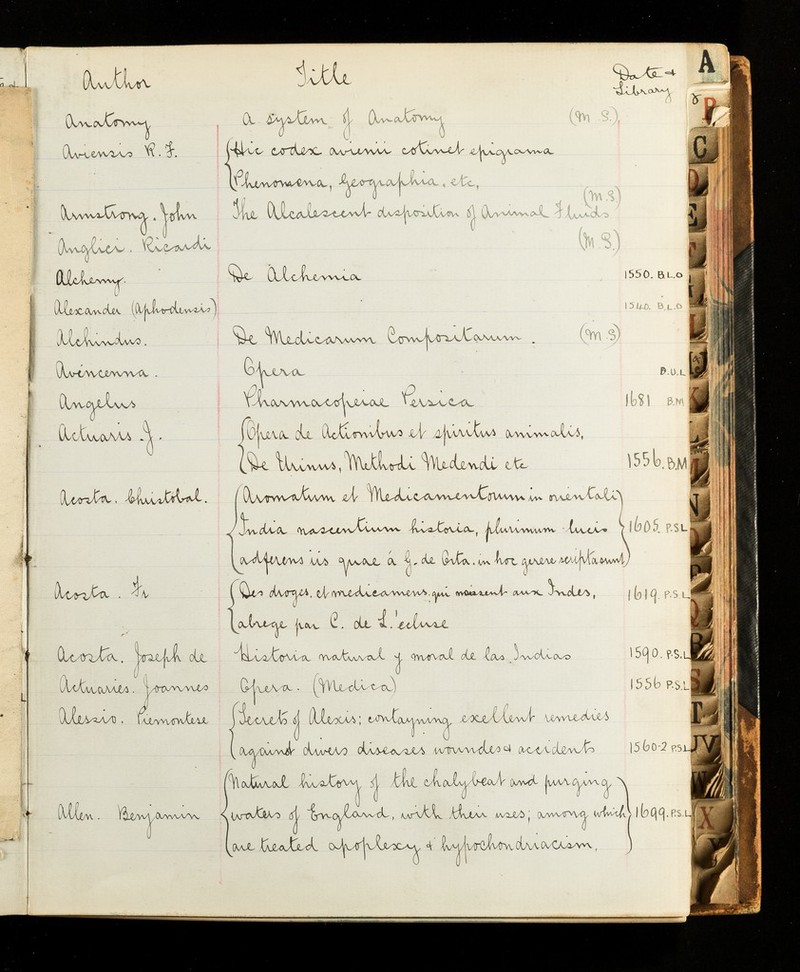 Author Title Date & Library
Anatomy A System of Anatomy (M S.)
Aviensis R. F. Hic codex avienii cotinet epigrama
Phenomena, Geographia, etc,
(M.S)
Armstrong. John The Alcalescent disposition of Animal Fluids
Anglici. Ricardi (M S.)
Alchemy. De Alchemia 1550. B.L.O
Alexander (Aphrodensis) 1540. B.L.O
Alchindus. De Medicarum Compositarum. (M S)
Avincenna. Opera B.U.L
Angelus Pharmacopeiae Persica 1681 B.M
Actuaris J. Opera de Actionibus et spiritus animalis,
De Urinus, Methodi Medendi etc 1556. B.M
Acosta. Christobal. Aromatum et Medicamentorum in orientali
India nascentium historia, plurimum lucis 1605. P.S.L
adferens iis quae á G. de Orta. in hoc genere scriptasunt
Acosta. Fr Des droges. et medicamens. qui naissent aux Indes, 1619. P.S.L
abrege par C. de L.'ecluse
Acosta. Joseph de Historia natural y moral de las Indias 1590. P.S.L
Actuaries. Joannes Opera. (Medica) 1556 P.S.L
Alessio. Piemontese Secrets of Alexis; contayning exellent remedies
against divers diseases woundes & accidents 1560-2 P.S.L
Natural history of the chalybeat and purging
Allen. Benjamin waters of England, with their uses; among which 1699. P.S.L
are treated apoplexy & hypochondriacism,
A
B
C
D
E
F
X